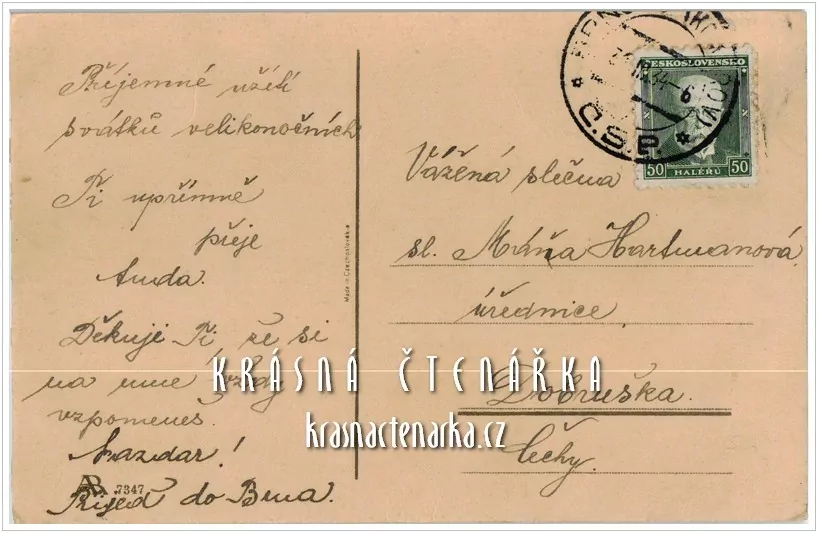 Příjemné užití
svátků velikonočních
Ti upřímně
přeje
Anda.
Děkuji Ti že si
na mne vždy
vzpomeneš.
Nazdar!
Přijeď do Brna.
7347
Made in Czechoslovakia
ČESKOSLOVENSKO
50 HALÉŘŮ 50
BRNO
Č.S.P.
Vážená slečna
sl. Máňa Hartmanová
úřednice
Dobruška.
Čechy.
KRÁSNÁ ČTENÁŘKA
krasnactenarka.cz